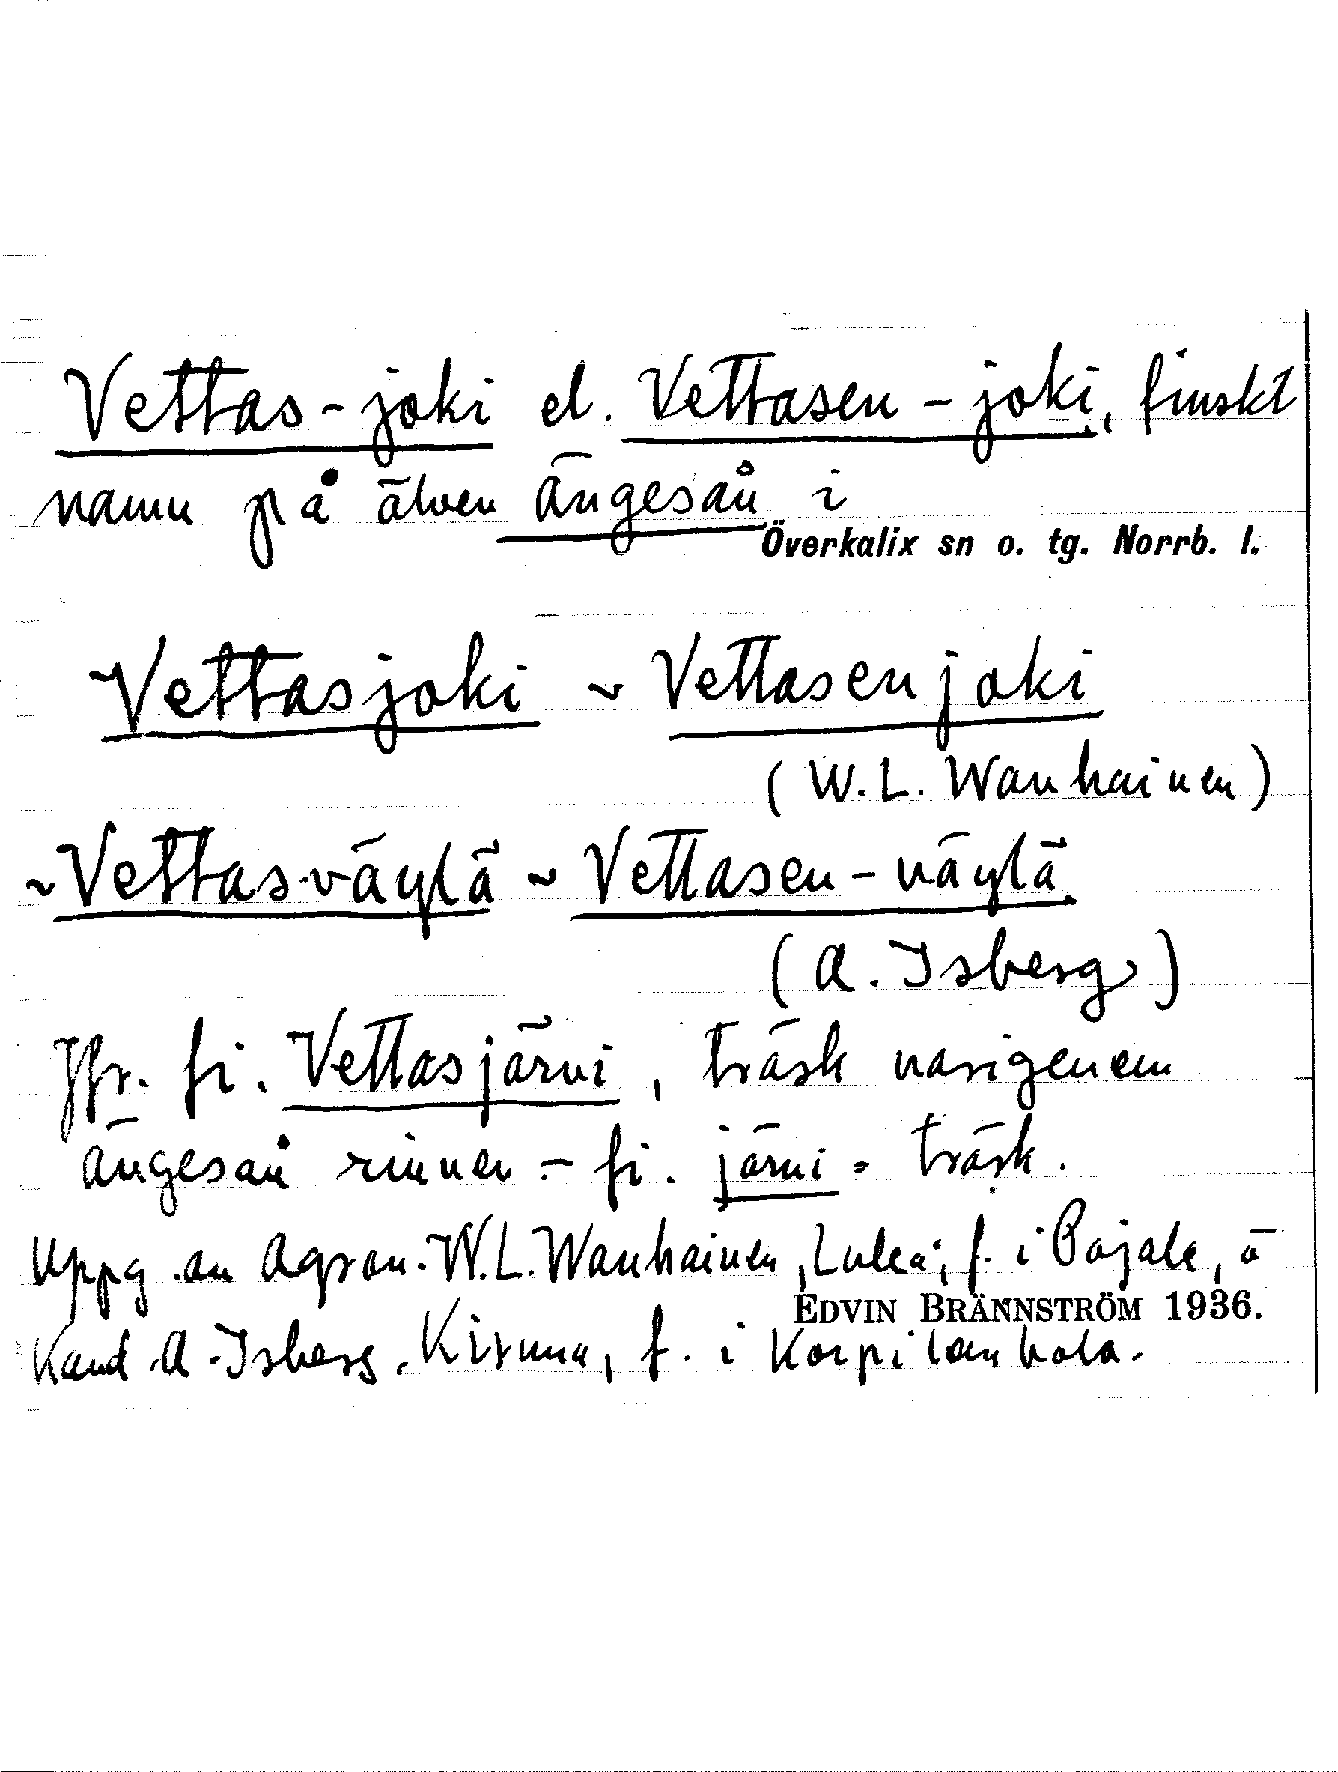 Vettas-joki el. Vettasen-joki, finskt
namn på älven Ängesån i
Överkalix sn o. tg. Norrb. l.
Vettasjoki ~ Vettasenjoki
(W.L. Wanhainen)
~Vettas-väylä ~ Vettasen-väylä
(A. Isberg)
Jfr. fi. Vettasjärvi, träsk varigenom
Ängesån rinner - fi. järvi = träsk.
Uppg. av Agron. W.L. Wanhainen, Luleå, f. i Pajala, o
EDVIN BRÄNNSTRÖM 1936.
Kand. A. Isberg, Kiruna, f. i Korpilombolo.